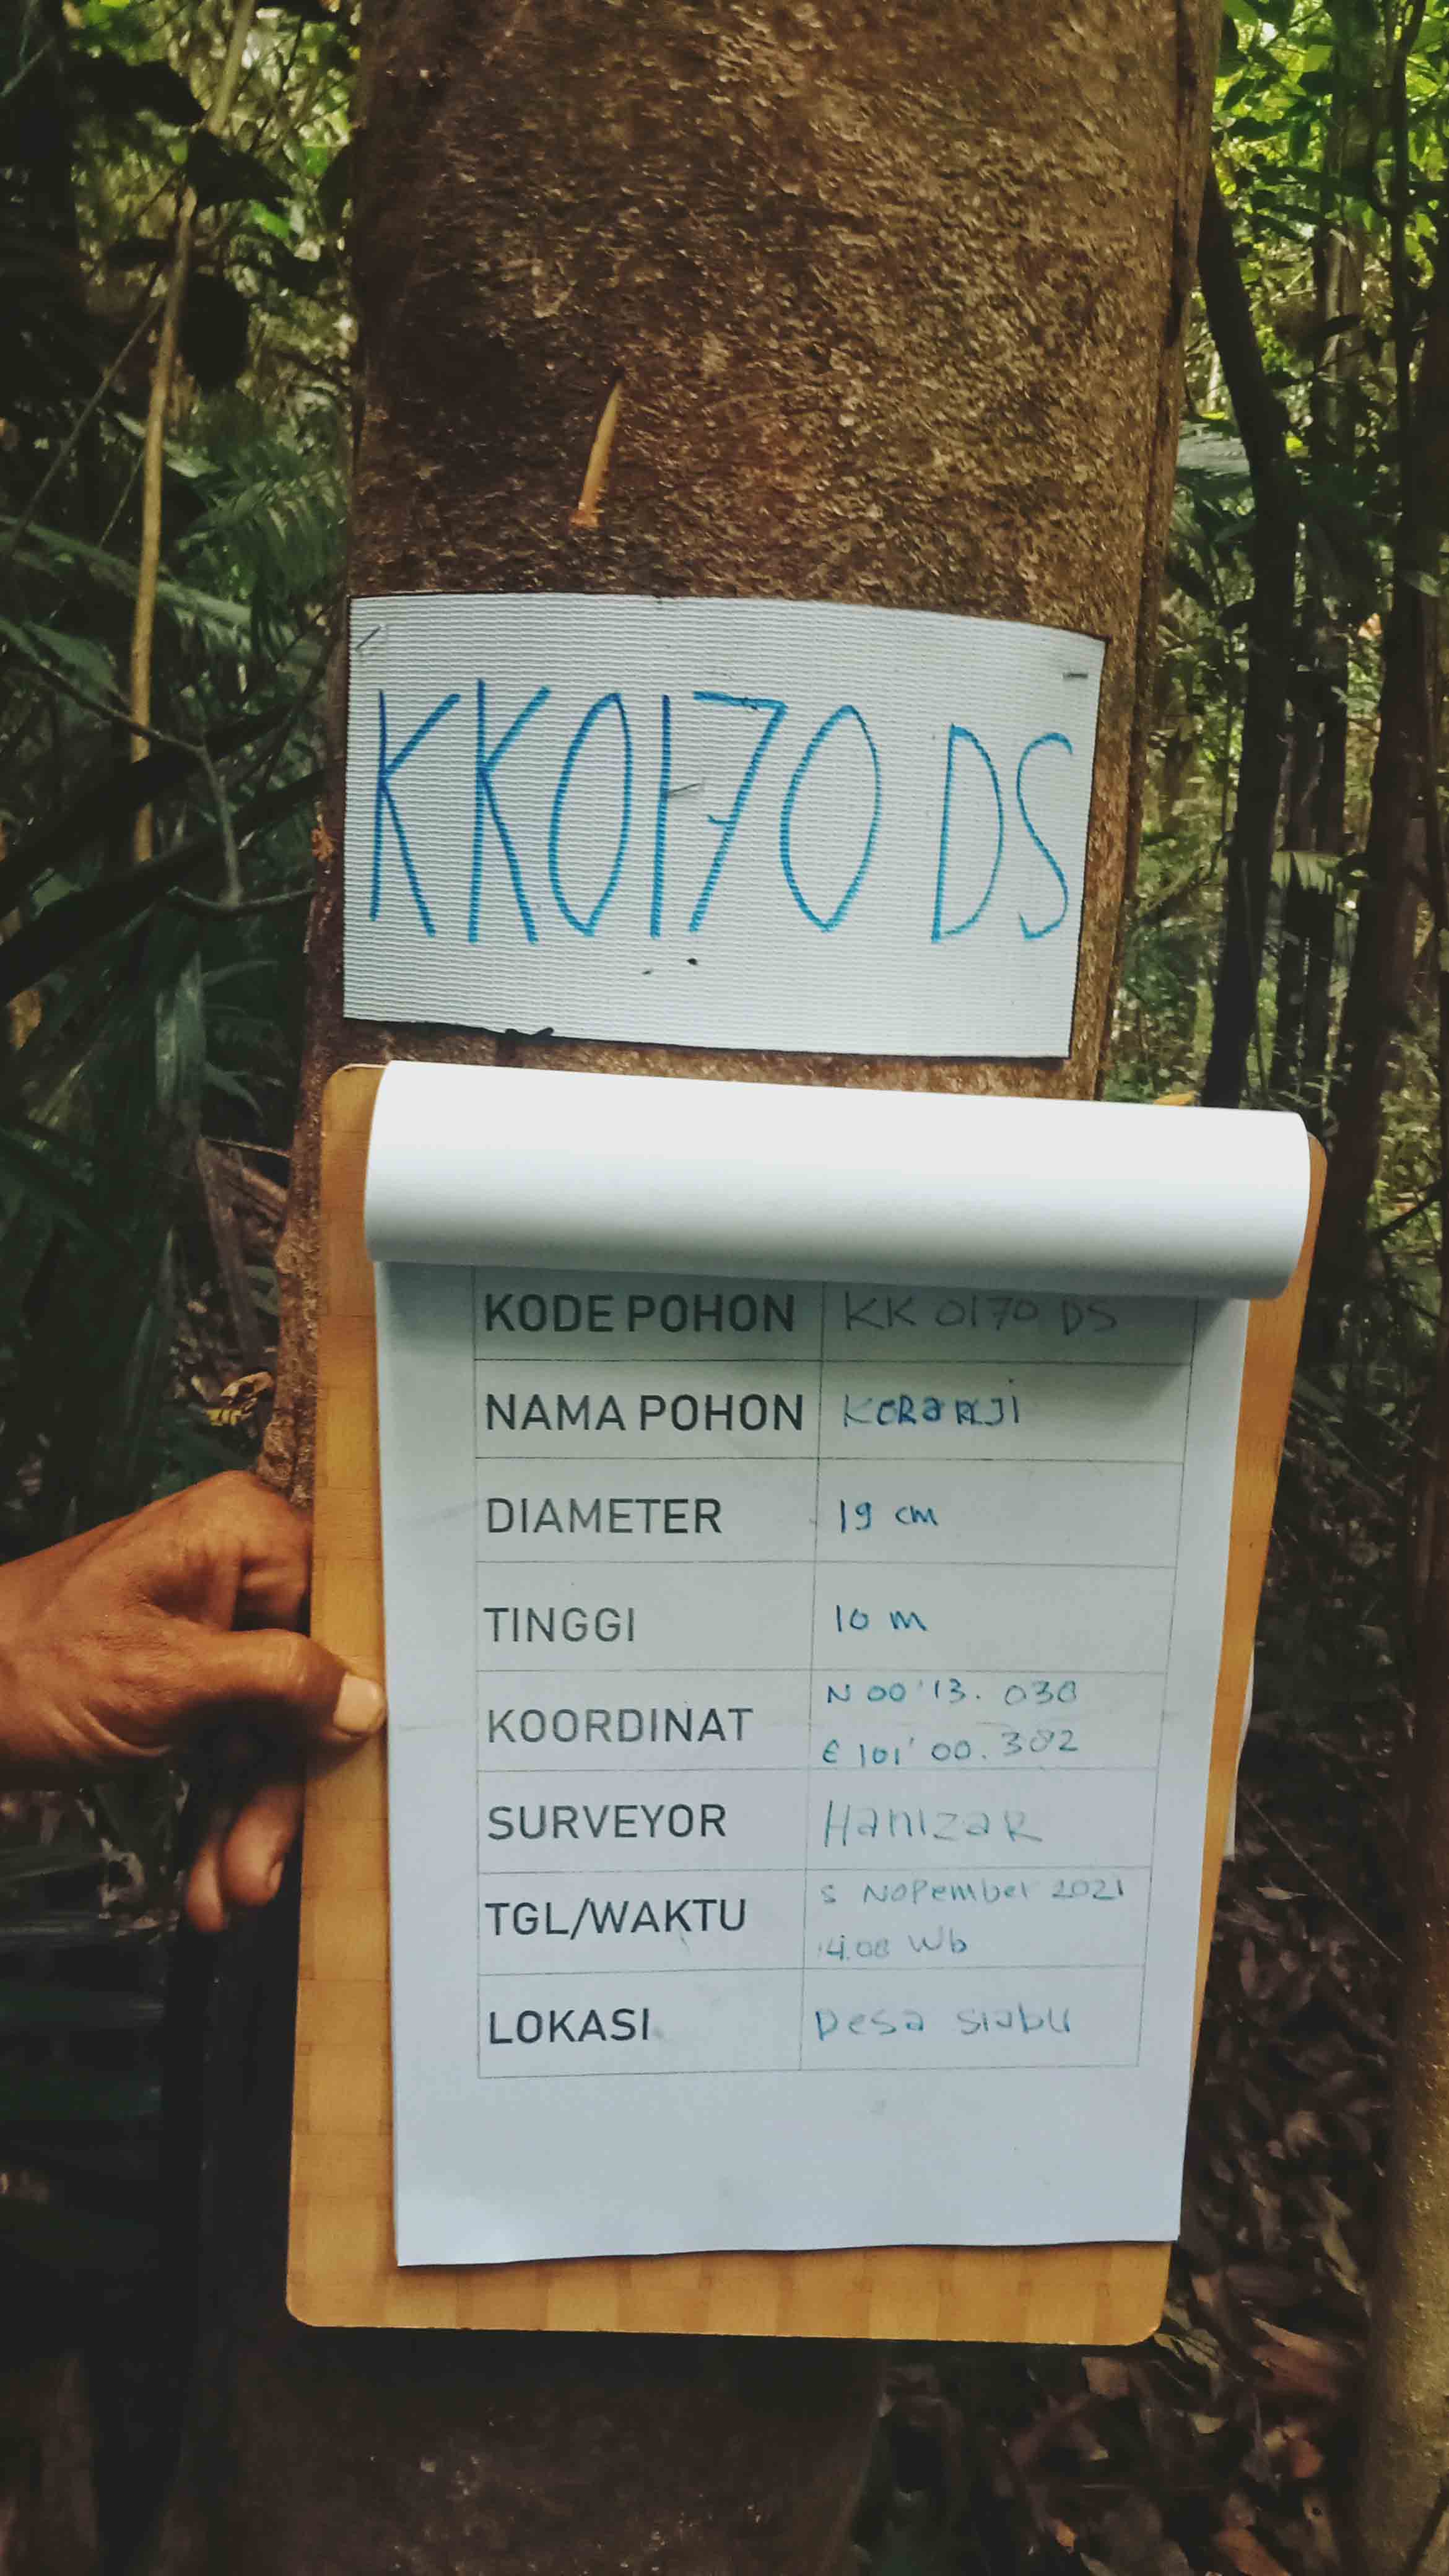 KK0170 DS
KODE POHON KK 0170 DS
NAMA POHON KERANJI
DIAMETER 19 cm
TINGGI 10 m
KOORDINAT N 00'13. 030
E 101'00. 302
SURVEYOR HanizaR
TGL/WAKTU 5 NoPember 2021
14.08 Wb
LOKASI Desa siabu